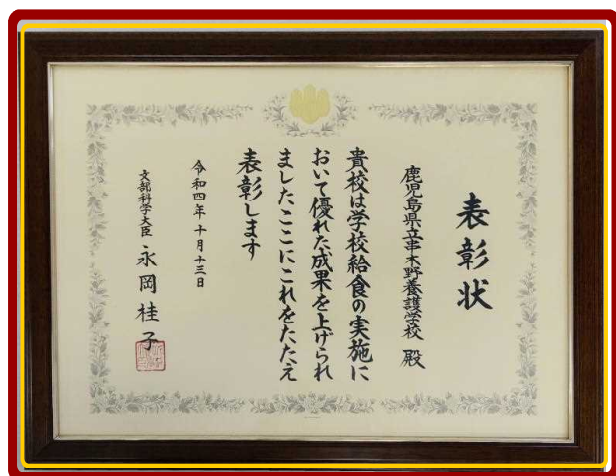 表彰状
鹿児島県立串木野養護学校 殿
貴校は学校給食の実施に
おいて優れた成果を上げられ
ましたここにこれをたたえ
表彰します
令和四年十月十三日
文部科学大臣 永岡桂子